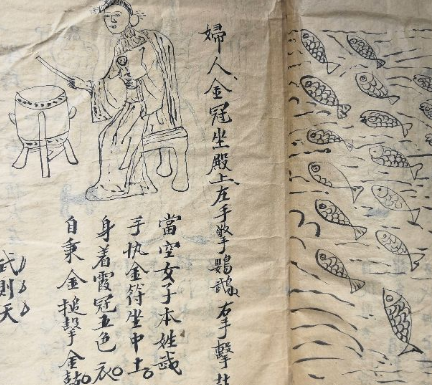 婦人金冠坐殿上左手擎鸚鵡右手擊鼓
當空女子本姓武
手执金符坐中土
身着霞冠五色衣
自秉金搥擊金鼓
武則天